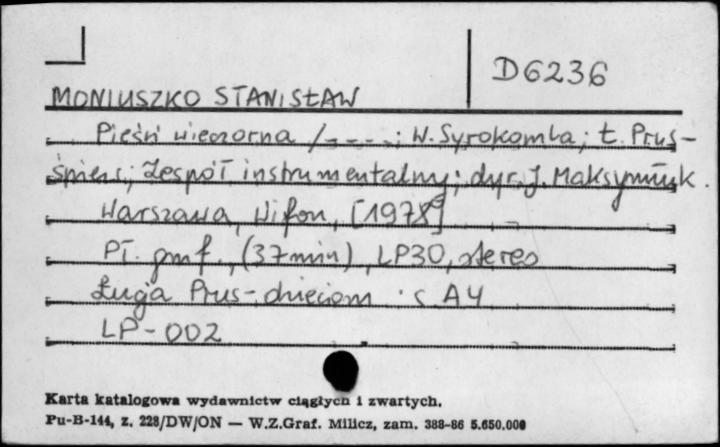 D6236
MONIUSZKO STANISŁAW
Pieśń wieczorna /----; W. Syrokomla; Ł. Prus-
śpiew.; Zespół instrumentalny; dyr. J. Maksymiuk.
Warszawa, Wifon, [1978]
Pł. gmf., (37 min), LP30, stereo
Łucja Prus - dzieciom : s A4
LP-002
Karta katalogowa wydawnictw ciągłych i zwartych.
Pu-B-144, z. 228/DW/ON — W.Z.Graf. Milicz, zam. 388-86 5.650.000